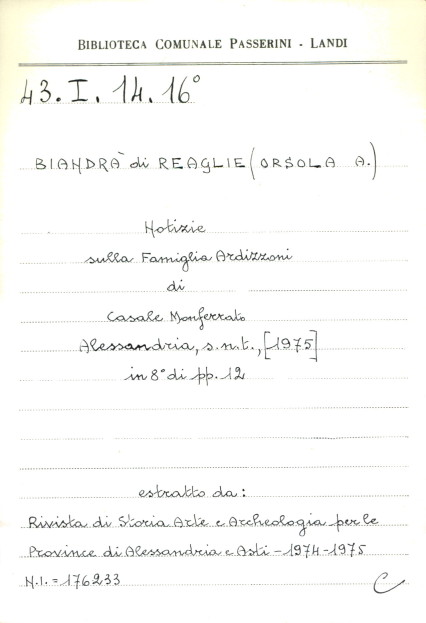 BIBLIOTECA COMUNALE PASSERINI - LANDI
43. I. 14. 16°
BIANDRÀ di REAGLIE (ORSOLA A.)
Notizie
sulla Famiglia Ardizzoni
di
Casale Monferrato
Alessandria, s.n.t., [1975]
in 8° di pp. 12
estratto da:
Rivista di Storia Arte e Archeologia per le
Province di Alessandria e Asti - 1974-1975
N.I. = 176233
C